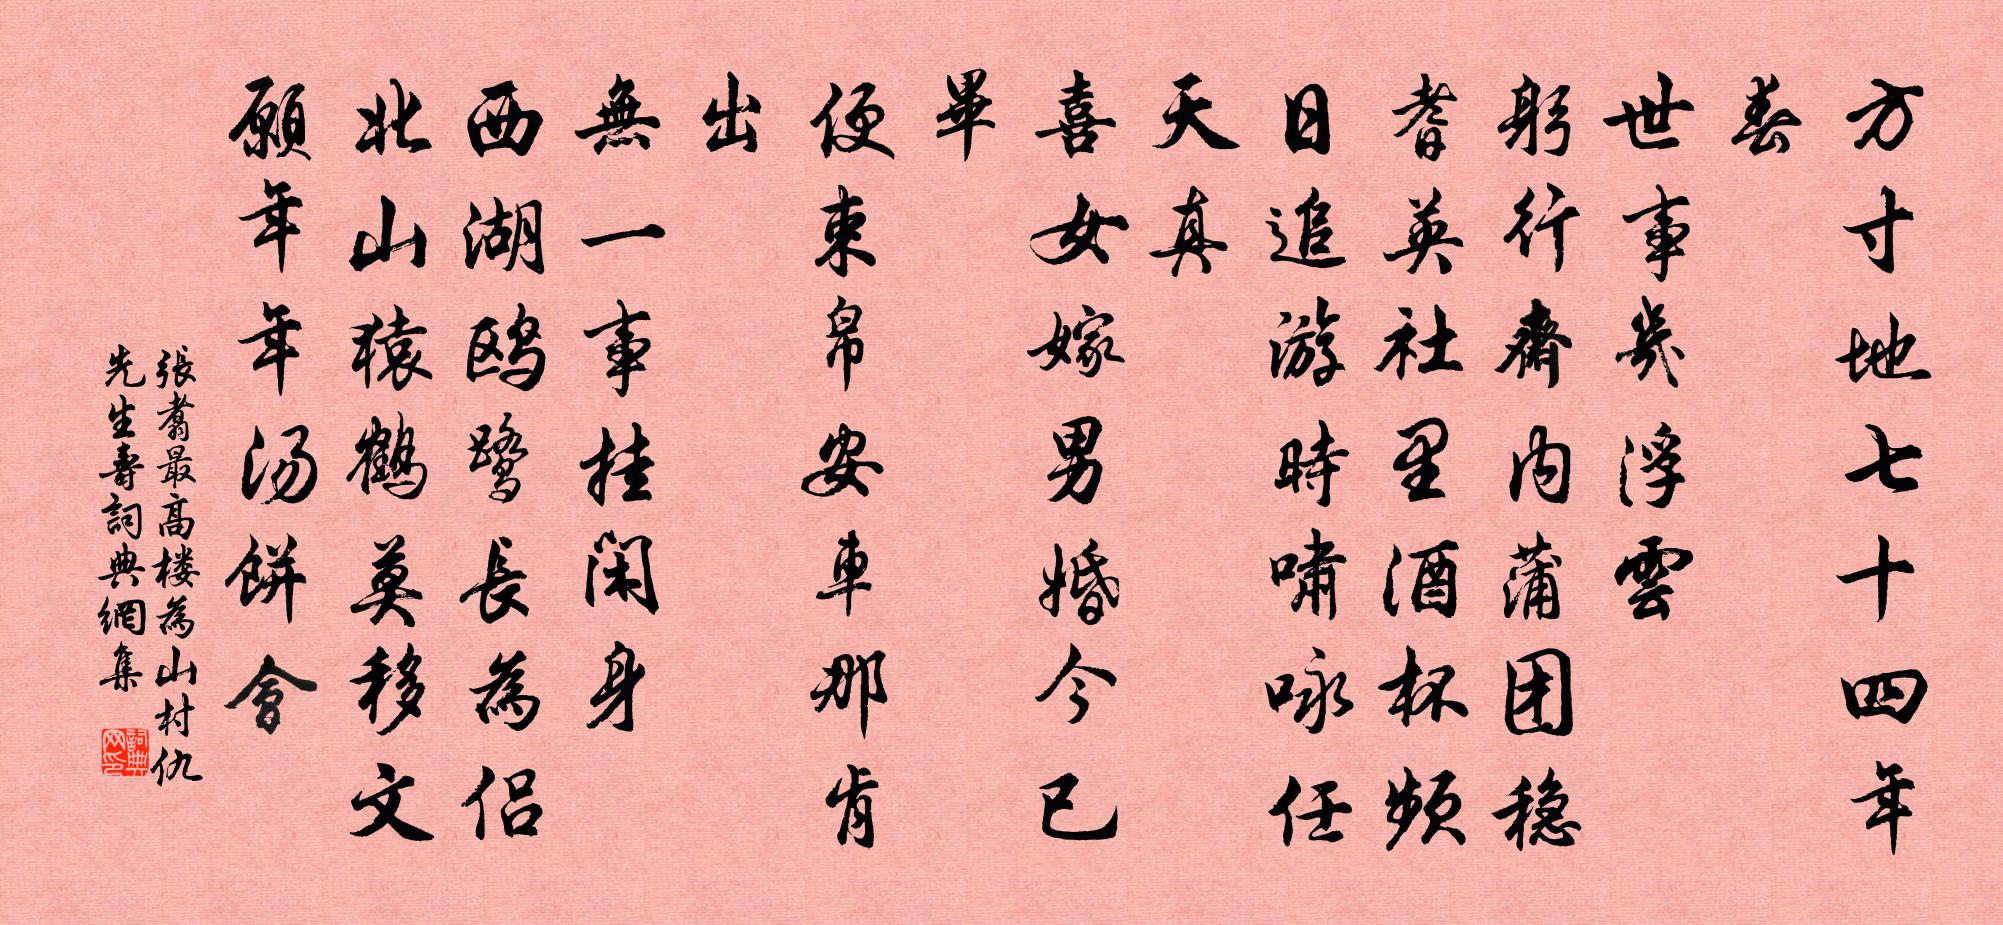 方寸地七十四年
春
世事幾浮雲
躬行齋內蒲团穏
耆英社里酒杯頻
日追游時嘯咏任
天真
喜女嫁男婚今已
畢
便束帛安車那肯
出
無一事挂閑身
西湖鸥鹭長為侣
北山猿鶴莫移文
願年年湯餅會
張翥最高楼為山村仇
先生壽詞典網集
詞典网印